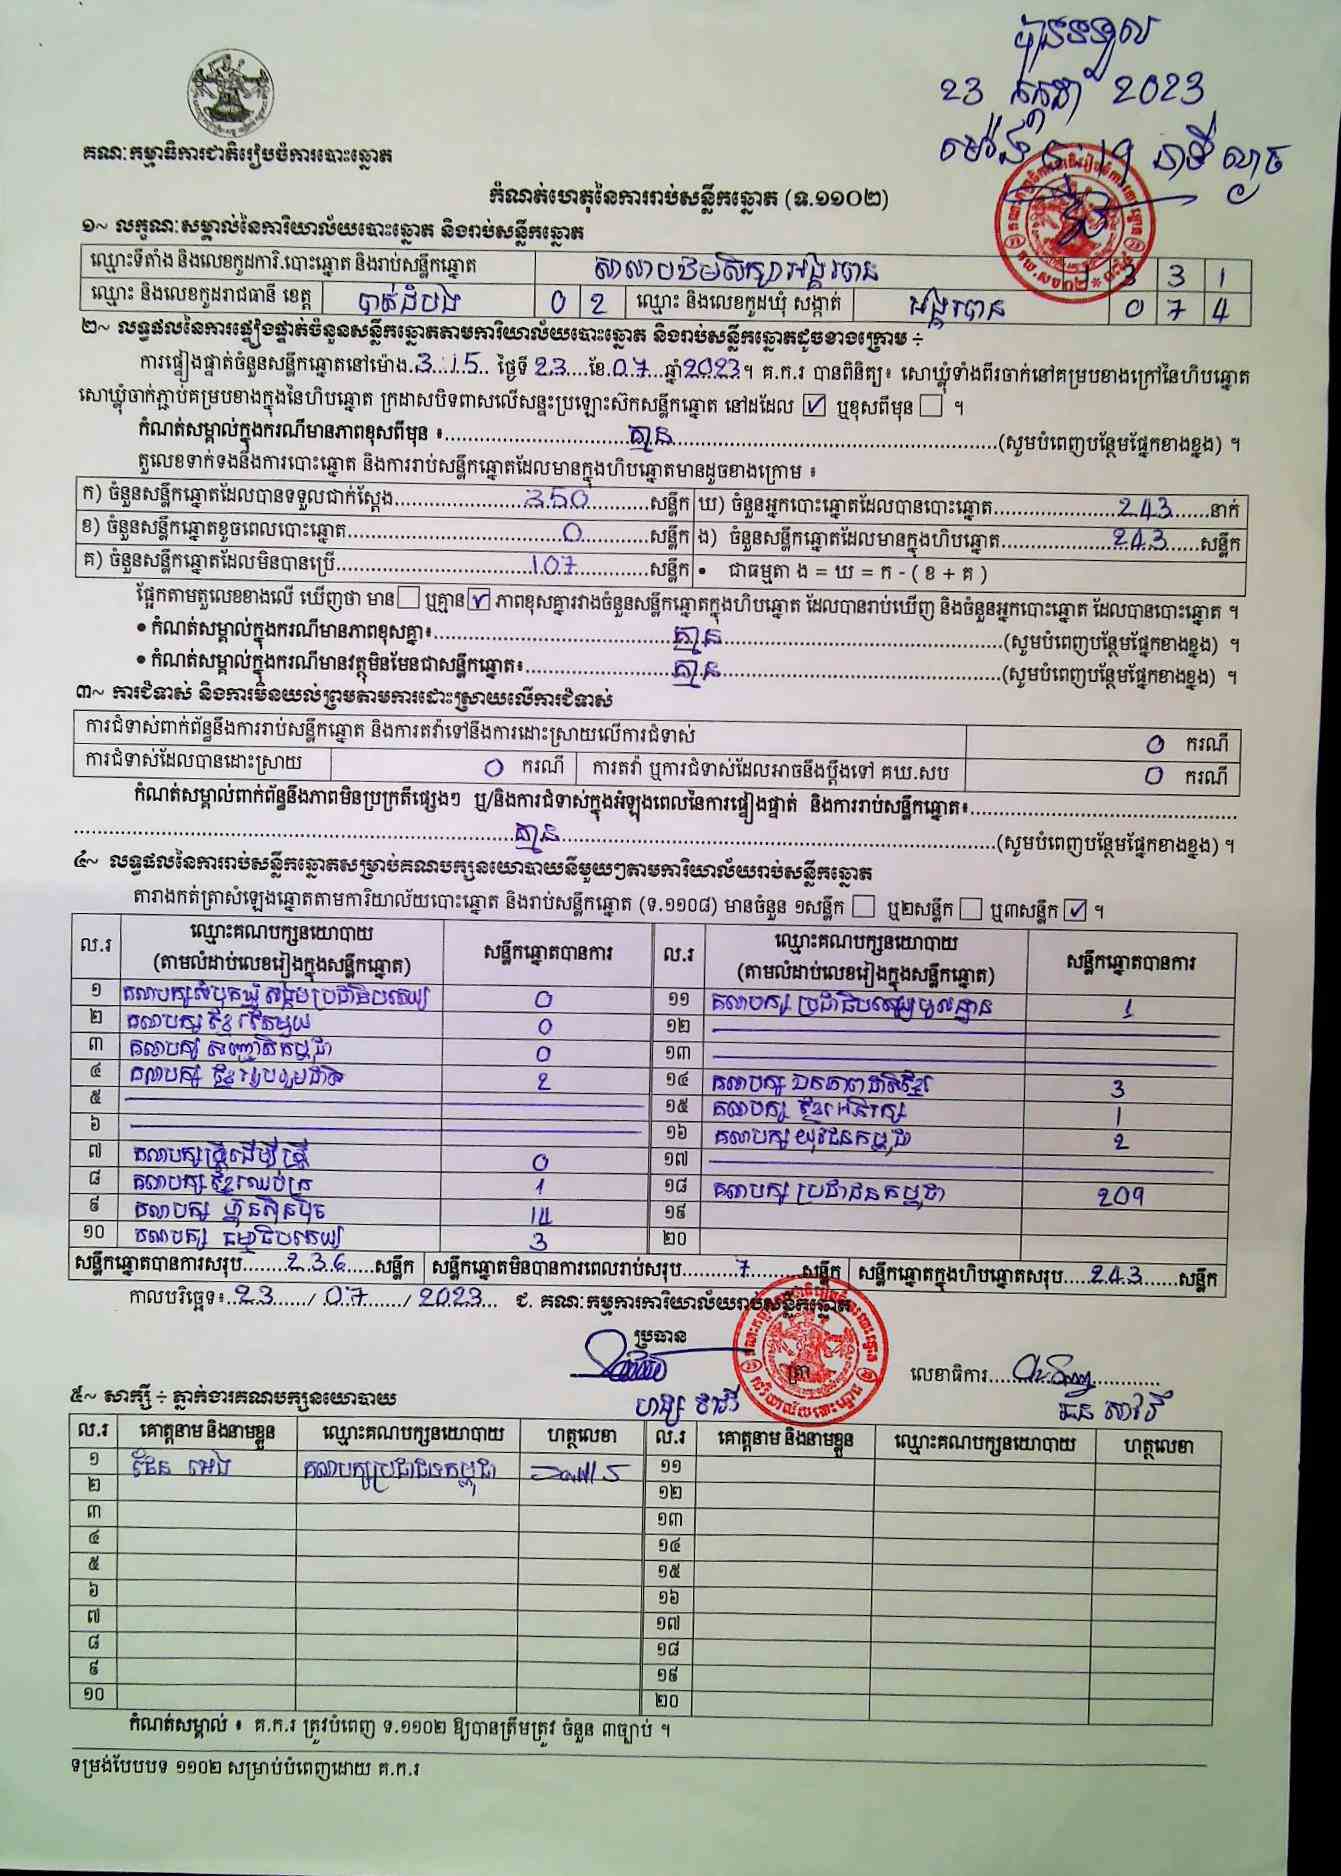 បានទទួល
23 កក្កដា 2023
ម៉ោង នាទី ល្ងាច
គណៈកម្មាធិការជាតិរៀបចំការបោះឆ្នោត
កំណត់ហេតុនៃការរាប់សន្លឹកឆ្នោត (ទ.១១០២)
១~ លក្ខណៈសម្គាល់នៃការិយាល័យបោះឆ្នោត និងរាប់សន្លឹកឆ្នោត
ឈ្មោះទីតាំង និងលេខកូដការិ.បោះឆ្នោត និងរាប់សន្លឹកឆ្នោត សាលាបឋមសិក្សាអង្គរបាន 3 3 1
ឈ្មោះ និងលេខកូដរាជធានី ខេត្ត បាត់ដំបង 0 2 ឈ្មោះ និងលេខកូដឃុំ សង្កាត់ អង្គរបាន 0 7 4
២~ លទ្ធផលនៃការផ្ទៀងផ្ទាត់ចំនួនសន្លឹកឆ្នោតតាមការិយាល័យបោះឆ្នោត និងរាប់សន្លឹកឆ្នោតដូចខាងក្រោម ÷
ការផ្ទៀងផ្ទាត់ចំនួនសន្លឹកឆ្នោតនៅម៉ោង 3:15 ថ្ងៃទី 23 ខែ 07 ឆ្នាំ 2023។ គ.ក.រ បានពិនិត្យ៖ សោឃ្លុំទាំងពីរចាក់នៅគម្របខាងក្រៅនៃហិបឆ្នោត
សោឃ្លុំចាក់ភ្ជាប់គម្របខាងក្នុងនៃហិបឆ្នោត ក្រដាសបិទពាសលើសន្ទះប្រឡោះស៊កសន្លឹកឆ្នោត នៅដដែល ☑ ឬខុសពីមុន ☐ ។
កំណត់សម្គាល់ក្នុងករណីមានភាពខុសពីមុន ៖ គ្មាន (សូមបំពេញបន្ថែមផ្នែកខាងខ្នង) ។
តួលេខទាក់ទងនឹងការបោះឆ្នោត និងការរាប់សន្លឹកឆ្នោតដែលមានក្នុងហិបឆ្នោតមានដូចខាងក្រោម ៖
ក) ចំនួនសន្លឹកឆ្នោតដែលបានទទួលជាក់ស្តែង 350 សន្លឹក ឃ) ចំនួនអ្នកបោះឆ្នោតដែលបានបោះឆ្នោត 243 នាក់
ខ) ចំនួនសន្លឹកឆ្នោតខូចពេលបោះឆ្នោត 0 សន្លឹក ង) ចំនួនសន្លឹកឆ្នោតដែលមានក្នុងហិបឆ្នោត 243 សន្លឹក
គ) ចំនួនសន្លឹកឆ្នោតដែលមិនបានប្រើ 107 សន្លឹក • ជាធម្មតា ង = ឃ = ក - ( ខ + គ )
ផ្អែកតាមតួលេខខាងលើ ឃើញថា មាន ☐ ឬគ្មាន ☑ ភាពខុសគ្នារវាងចំនួនសន្លឹកឆ្នោតក្នុងហិបឆ្នោត ដែលបានរាប់ឃើញ និងចំនួនអ្នកបោះឆ្នោត ដែលបានបោះឆ្នោត ។
• កំណត់សម្គាល់ក្នុងករណីមានភាពខុសគ្នា៖ គ្មាន (សូមបំពេញបន្ថែមផ្នែកខាងខ្នង) ។
• កំណត់សម្គាល់ក្នុងករណីមានវត្ថុមិនមែនជាសន្លឹកឆ្នោត៖ គ្មាន (សូមបំពេញបន្ថែមផ្នែកខាងខ្នង) ។
៣~ ការជំទាស់ និងការមិនយល់ព្រមតាមការដោះស្រាយលើការជំទាស់
ការជំទាស់ពាក់ព័ន្ធនឹងការរាប់សន្លឹកឆ្នោត និងការតវ៉ាទៅនឹងការដោះស្រាយលើការជំទាស់ 0 ករណី
ការជំទាស់ដែលបានដោះស្រាយ 0 ករណី ការតវ៉ា ឬការជំទាស់ដែលអាចនឹងប្តឹងទៅ គឃ.សប 0 ករណី
កំណត់សម្គាល់ពាក់ព័ន្ធនឹងភាពមិនប្រក្រតីផ្សេងៗ ឬ/និងការជំទាស់ក្នុងអំឡុងពេលនៃការផ្ទៀងផ្ទាត់ និងការរាប់សន្លឹកឆ្នោត៖
គ្មាន (សូមបំពេញបន្ថែមផ្នែកខាងខ្នង) ។
៤~ លទ្ធផលនៃការរាប់សន្លឹកឆ្នោតសម្រាប់គណបក្សនយោបាយនីមួយៗតាមការិយាល័យរាប់សន្លឹកឆ្នោត
តារាងកត់ត្រាសំឡេងឆ្នោតតាមការិយាល័យបោះឆ្នោត និងរាប់សន្លឹកឆ្នោត (ទ.១១០៨) មានចំនួន ១សន្លឹក ☐ ឬ២សន្លឹក ☐ ឬ៣សន្លឹក ☑ ។
ល.រ ឈ្មោះគណបក្សនយោបាយ (តាមលំដាប់លេខរៀងក្នុងសន្លឹកឆ្នោត) សន្លឹកឆ្នោតបានការ ល.រ ឈ្មោះគណបក្សនយោបាយ (តាមលំដាប់លេខរៀងក្នុងសន្លឹកឆ្នោត) សន្លឹកឆ្នោតបានការ
១ គណបក្សសំបុកឃ្មុំសង្គមប្រជាធិបតេយ្យ 0 ១១ គណបក្ស ប្រជាធិបតេយ្យមូលដ្ឋាន 1
២ គណបក្ស ខ្មែរតែមួយ 0 ១២
៣ គណបក្ស សញ្ជាតិកម្ពុជា 0 ១៣
៤ គណបក្ស ខ្មែររួបរួមជាតិ 2 ១៤ គណបក្ស ឯកភាពជាតិខ្មែរ 3
៥ ១៥ គណបក្ស ខ្មែរអភិរក្ស 1
៦ ១៦ គណបក្ស យុវជនកម្ពុជា 2
៧ គណបក្សស្ត្រីដើម្បីស្ត្រី 0 ១៧
៨ គណបក្ស ខ្មែរឈប់ក្រ 1 ១៨ គណបក្ស ប្រជាជនកម្ពុជា 209
៩ គណបក្ស ហ្វ៊ុនស៊ិនប៉ិច 14 ១៩
១០ គណបក្ស ធម្មាធិបតេយ្យ 3 ២០
សន្លឹកឆ្នោតបានការសរុប 236 សន្លឹក សន្លឹកឆ្នោតមិនបានការពេលរាប់សរុប 7 សន្លឹក សន្លឹកឆ្នោតក្នុងហិបឆ្នោតសរុប 243 សន្លឹក
កាលបរិច្ឆេទ៖ 23 / 07 / 2023 ជ. គណៈកម្មការការិយាល័យរាប់សន្លឹកឆ្នោត
ប្រធាន
ត្រា លេខាធិការ
៥~ សាក្សី ÷ ភ្នាក់ងារគណបក្សនយោបាយ
ល.រ គោត្តនាម និងនាមខ្លួន ឈ្មោះគណបក្សនយោបាយ ហត្ថលេខា ល.រ គោត្តនាម និងនាមខ្លួន ឈ្មោះគណបក្សនយោបាយ ហត្ថលេខា
១ គណបក្សប្រជាជនកម្ពុជា ១១
២ ១២
៣ ១៣
៤ ១៤
៥ ១៥
៦ ១៦
៧ ១៧
៨ ១៨
៩ ១៩
១០ ២០
កំណត់សម្គាល់ ៖ គ.ក.រ ត្រូវបំពេញ ទ.១១០២ ឱ្យបានត្រឹមត្រូវ ចំនួន ៣ច្បាប់ ។
ទម្រង់បែបបទ ១១០២ សម្រាប់បំពេញដោយ គ.ក.រ